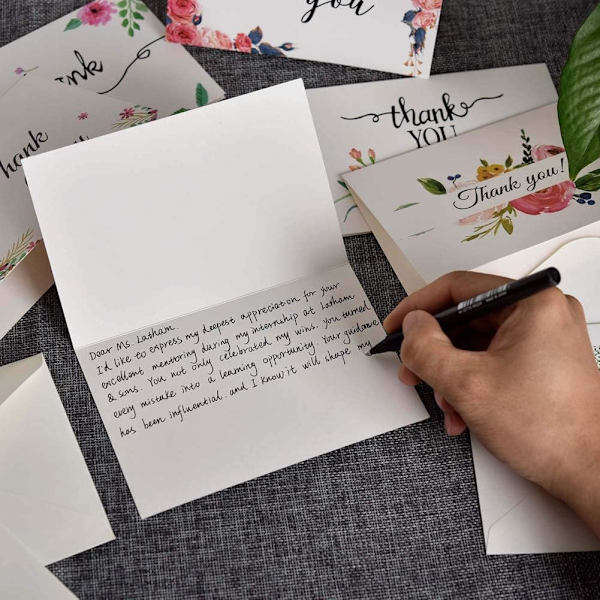 you
thank
YOU
Thank you!
Dear Ms. Latham.
I'd like to express my deepest appreciation for your
excellent mentoring during my internship at Latham
& sons. You not only celebrated my wins. you turned
every mistake into a learning opportunity. Your guidance
has been influential. and I know it will shape my